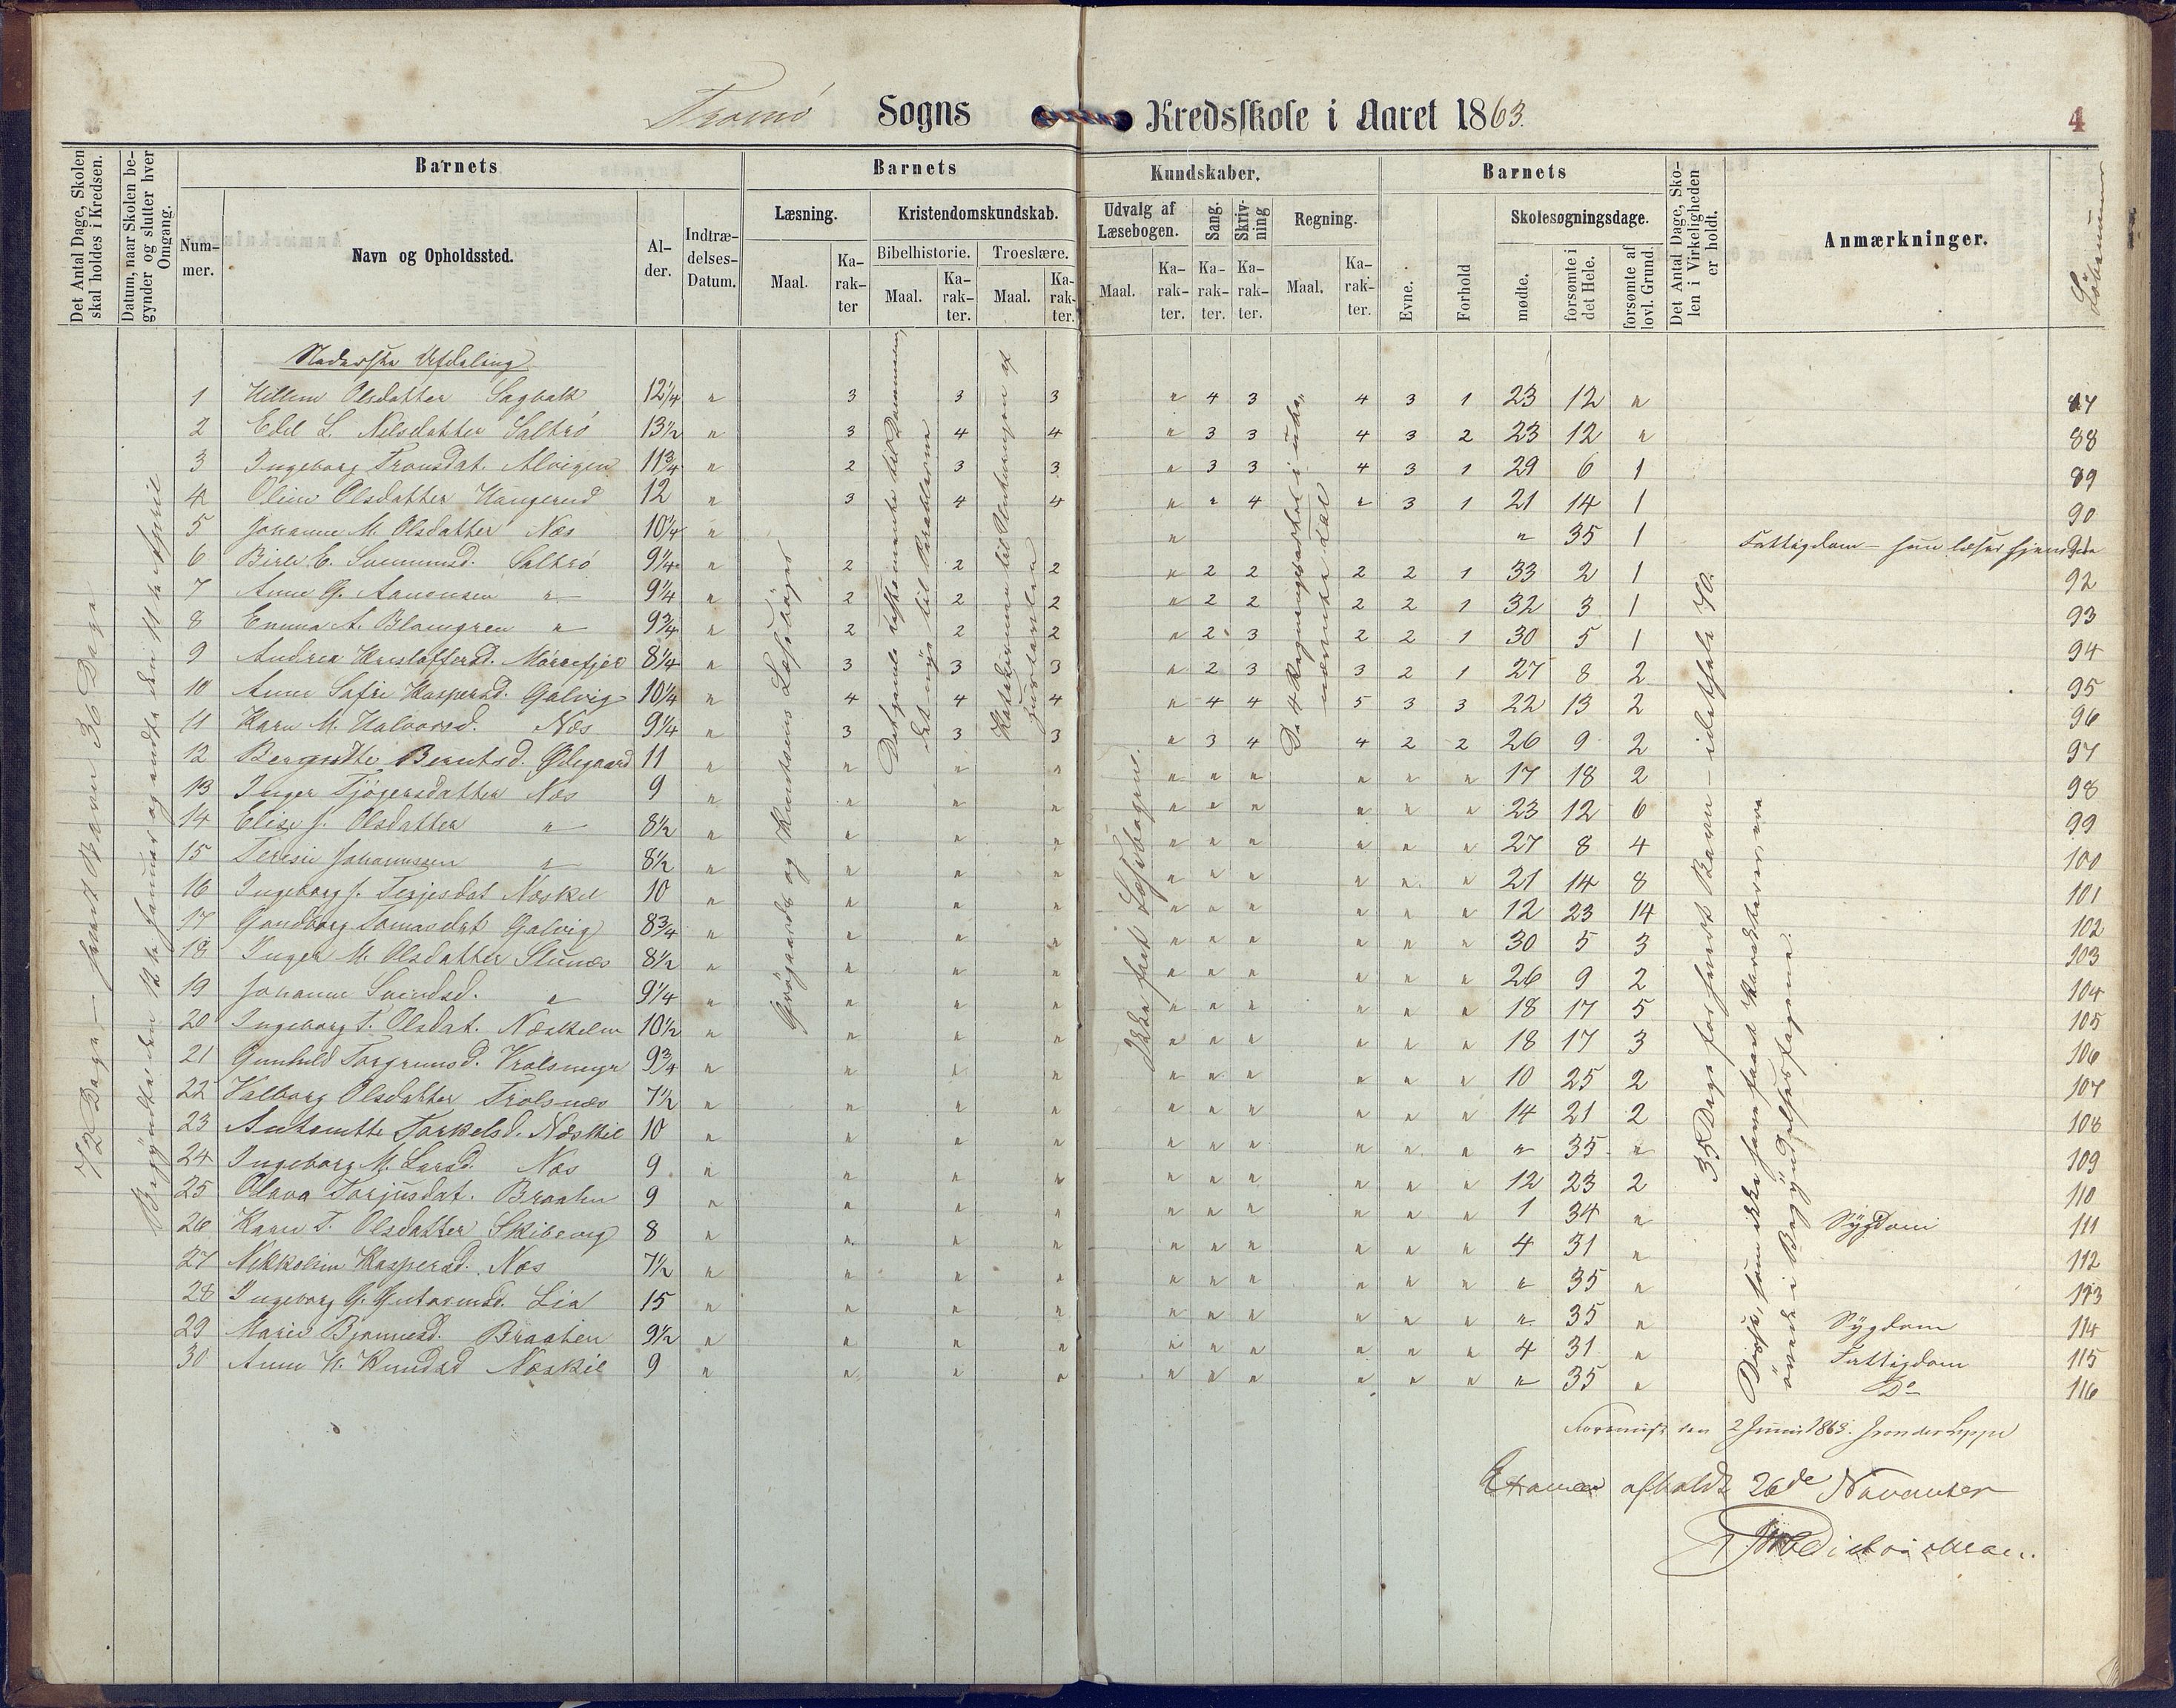 Tromø Sogns Kredsskole i Aaret 1863.
4
Det Antal Dage, Skolen skal holdes i Kredsen.
Datum, naar Skolen begynder og slutter hver Omgang.
Barnets
Barnets
Kundskaber.
Barnets
Det Antal Dage, Skolen i Virkeligheden er holdt.
Anmærkninger.
Løbenumer
Nummer.
Navn og Opholdssted.
Alder.
Indtrædelses-Datum.
Læsning.
Kristendomskundskab.
Udvalg af Læsebogen.
Sang.
Skrivning
Regning.
Evne.
Forhold
Skolesøgningsdage.
Bibelhistorie.
Troeslære.
Maal.
Karakter
Maal.
Karakter.
Maal.
Karakter.
Maal.
Karakter.
Karakter.
Karakter.
Maal.
Karakter.
mødte.
forsømte i det Hele.
forsømte af lovl. Grund.
72 Dage – hvert Barn 36 Dage
Begyndte den 12te Januar og endte den 11te April
Nederste Afdeling
Grøgaards og Knutsens Læsebøger
Ikke fast Læsebøgene.
De 4 Regningsarter i ube-
nævnte Tal
35 Dage for hvert Barn – idethele 70.
Disse, som ikke have faaet Karakterer, ere
øvede i Begyndelsesfagene.
1 Olsdatter 12¼ " 3 3 3 " 4 3 4 3 1 23 12 " 87
2 Edel L. Nilsdatter Saltrö 13½ " 3 4 4 " 3 3 4 3 2 23 12 " 88
3 Ingeborg Tronsdat. Alvigen 11¾ " 2 3 3 " 3 3 4 3 1 29 6 1 89
4 Oline Olsdatter Haugerud 12 " 3 4 4 " " 4 " 3 1 21 14 1 90
5 Johanne M. Olsdatter Næs 10¼ " " " 35 1 Fattigdom – hun læser hjemme 91
6 Saltrö 9¼ " 2 2 2 " 2 2 2 2 1 33 2 1 92
7 Anne G. Aanonsen " 9¼ " 2 2 2 " 2 2 2 2 1 32 3 1 93
8 Emma A. Blomgren " 9¾ " 2 2 2 " 2 3 2 2 1 30 5 1 94
9 Andrea Kristoffersd. Mörrefjer 8¼ " 3 3 3 " 2 3 3 2 1 27 8 2 95
10 Anne Sofie Kaspersd. Galvig 10¼ " 4 4 4 " 4 4 5 3 3 22 13 2 96
11 Karn M. Halvorsd. Næs 9¼ " 3 3 3 " 3 4 4 2 2 26 9 2 97
12 Berntsd. Ødegaard 11 " " " " " " " " " " 17 18 2 98
13 Inger Tjögersdatter Næs 9 " " " " " " " " " " 23 12 6 99
14 Elise J. Olsdatter " 8½ " " " " " " " " " " 27 8 4 100
15 Teresie Johannssen " 8½ " " " " " " " " " " 21 14 8 101
16 Ingeborg J. Terjesdat Næskil 10 " " " " " " " " " " 12 23 14 102
17 Gundborg Tomasdat Galvig 8¾ " " " " " " " " " " 30 5 3 103
18 Inger M. Olsdatter 8½ " " " " " " " " " " 26 9 2 104
19 Johanne Svendsd. " 9¼ " " " " " " " " " " 18 17 5 105
20 Ingeborg T. Olsdat. Næskilen 10½ " " " " " " " " " " 18 17 3 106
21 Gunhild Torgrimsd. 9¾ " " " " " " " " " " 10 25 2 107
22 Valborg Olsdatter 7½ " " " " " " " " " " 14 21 2 108
23 Antonette Torkelsd. Næskil 10 " " " " " " " " " " " 35 " 109
24 Ingeborg M. Larsd. Næs 9 " " " " " " " " " " 12 23 2 110
25 Olava Torjusdat. Braaten 9 " " " " " " " " " " 1 34 " Sygdom 111
26 Karn T. Olsdatter 8 " " " " " " " " " " 4 31 " 112
27 Nikkoline Kaspersd. Næs 7½ " " " " " " " " " " " 35 " 113
28 Ingeborg G. Lia 15 " " " " " " " " " " " 35 " Sygdom 114
29 Marie Braaten 9½ " " " " " " " " " " 4 31 " Fattigdom 115
30 Anne K. Knudsd Næskil 9 " " " " " " " " " " " 35 " Do 116
den 2 Juni 1863.
Examen afholdt 26de November